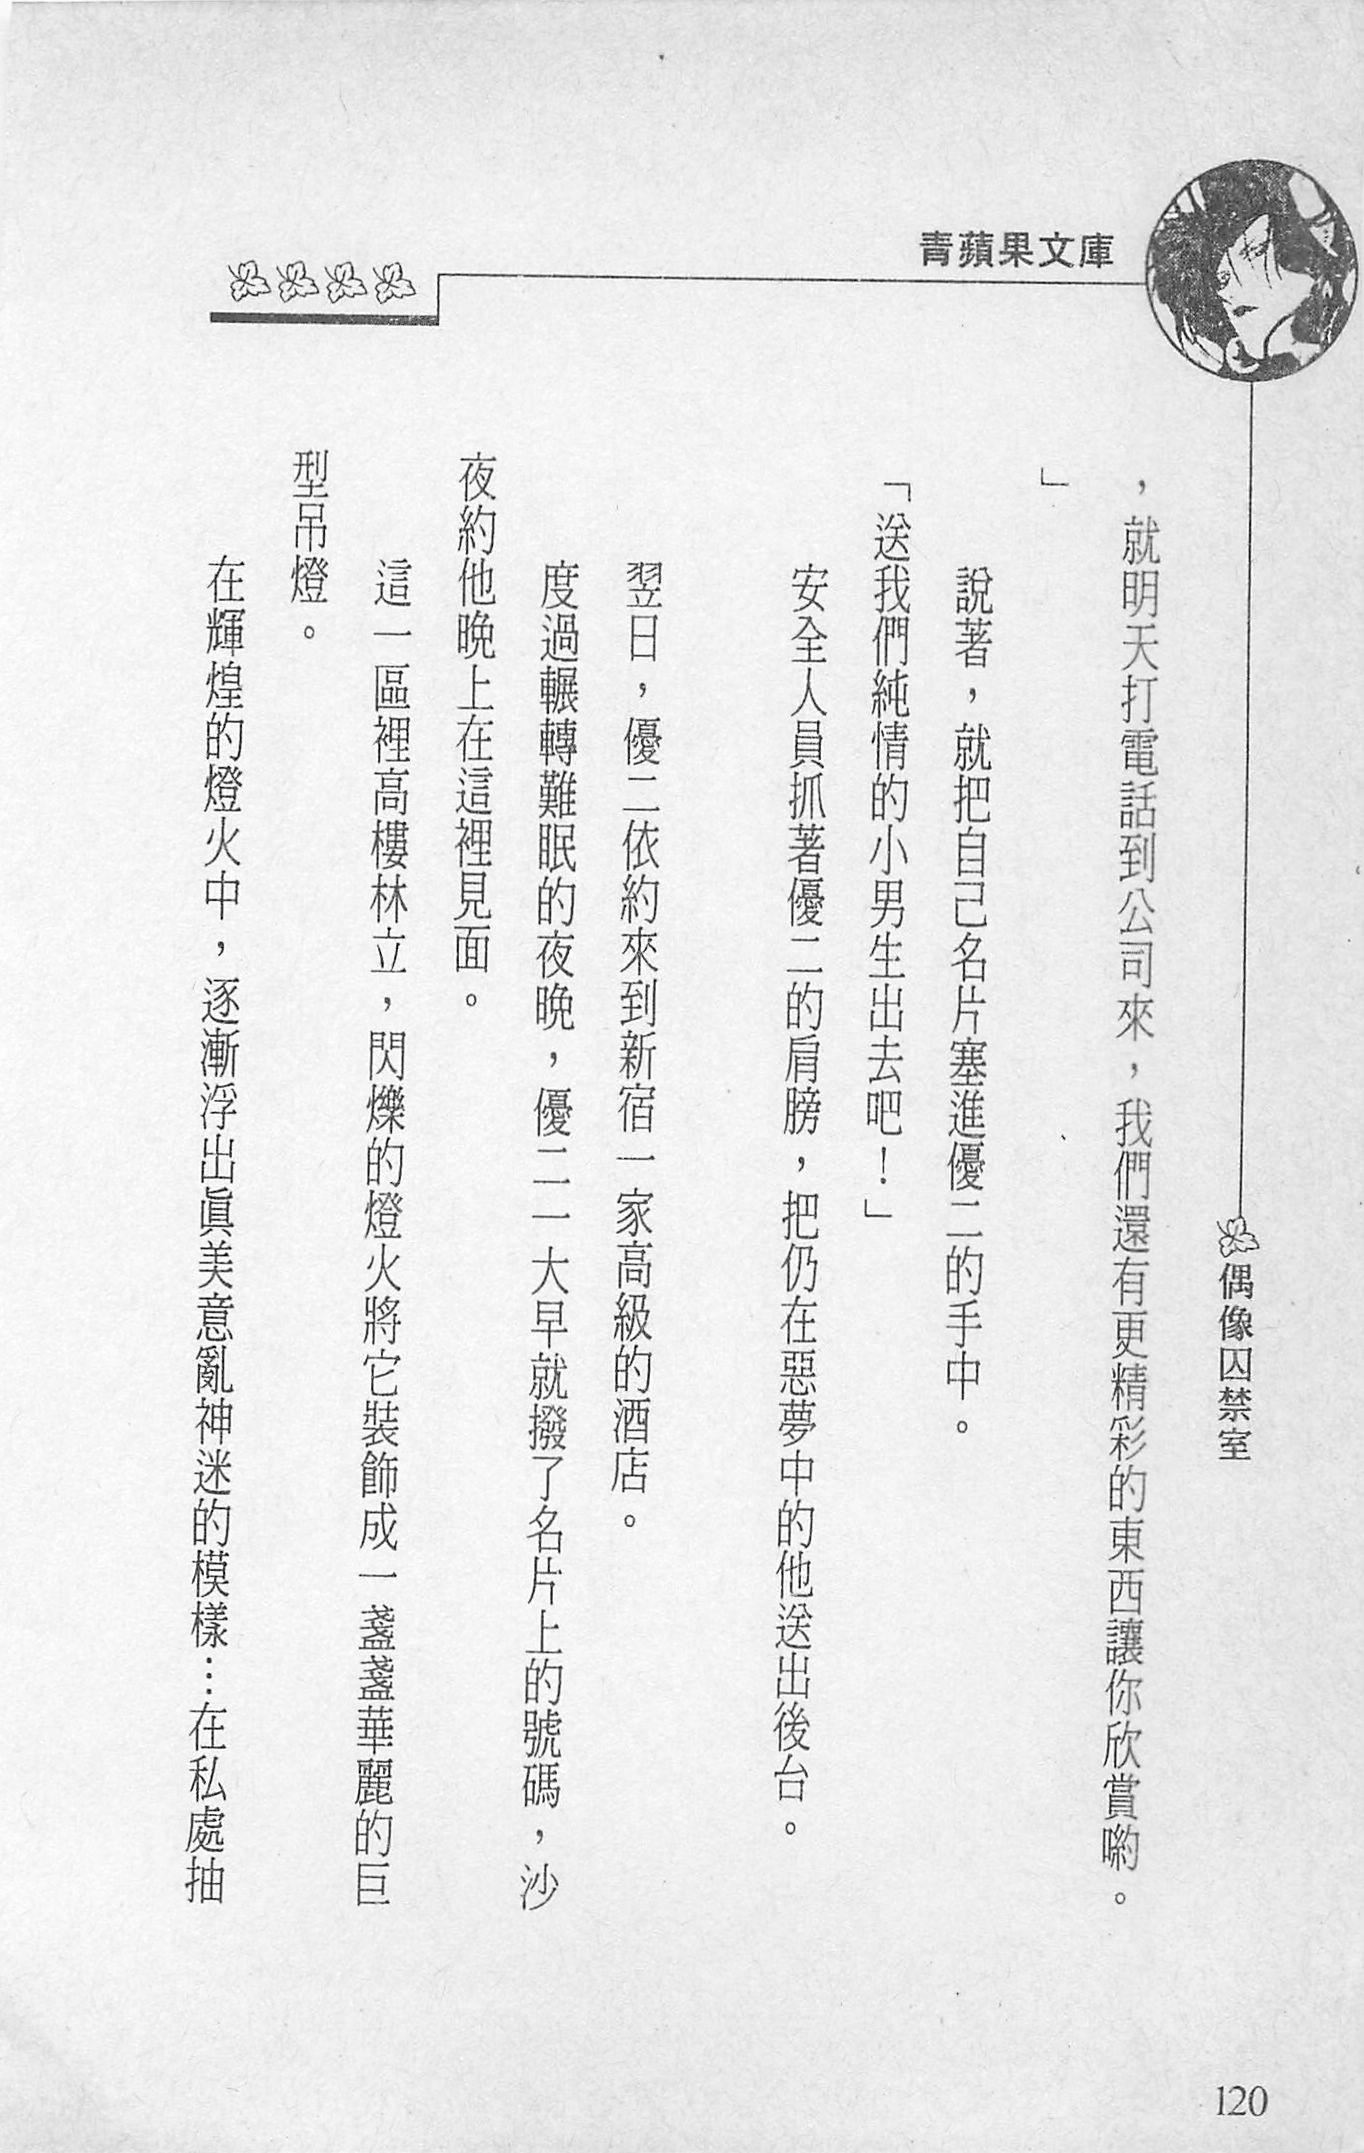 青蘋果文庫
偶像囚禁室
，就明天打電話到公司來，我們還有更精彩的東西讓你欣賞喲。
」
說著，就把自己名片塞進優二的手中。
「送我們純情的小男生出去吧！」
安全人員抓著優二的肩膀，把仍在惡夢中的他送出後台。
翌日，優二依約來到新宿一家高級的酒店。
度過輾轉難眠的夜晚，優二一大早就撥了名片上的號碼，沙
夜約他晚上在這裡見面。
這一區裡高樓林立，閃爍的燈火將它裝飾成一盞盞華麗的巨
型吊燈。
在輝煌的燈火中，逐漸浮出眞美意亂神迷的模樣…在私處抽
120